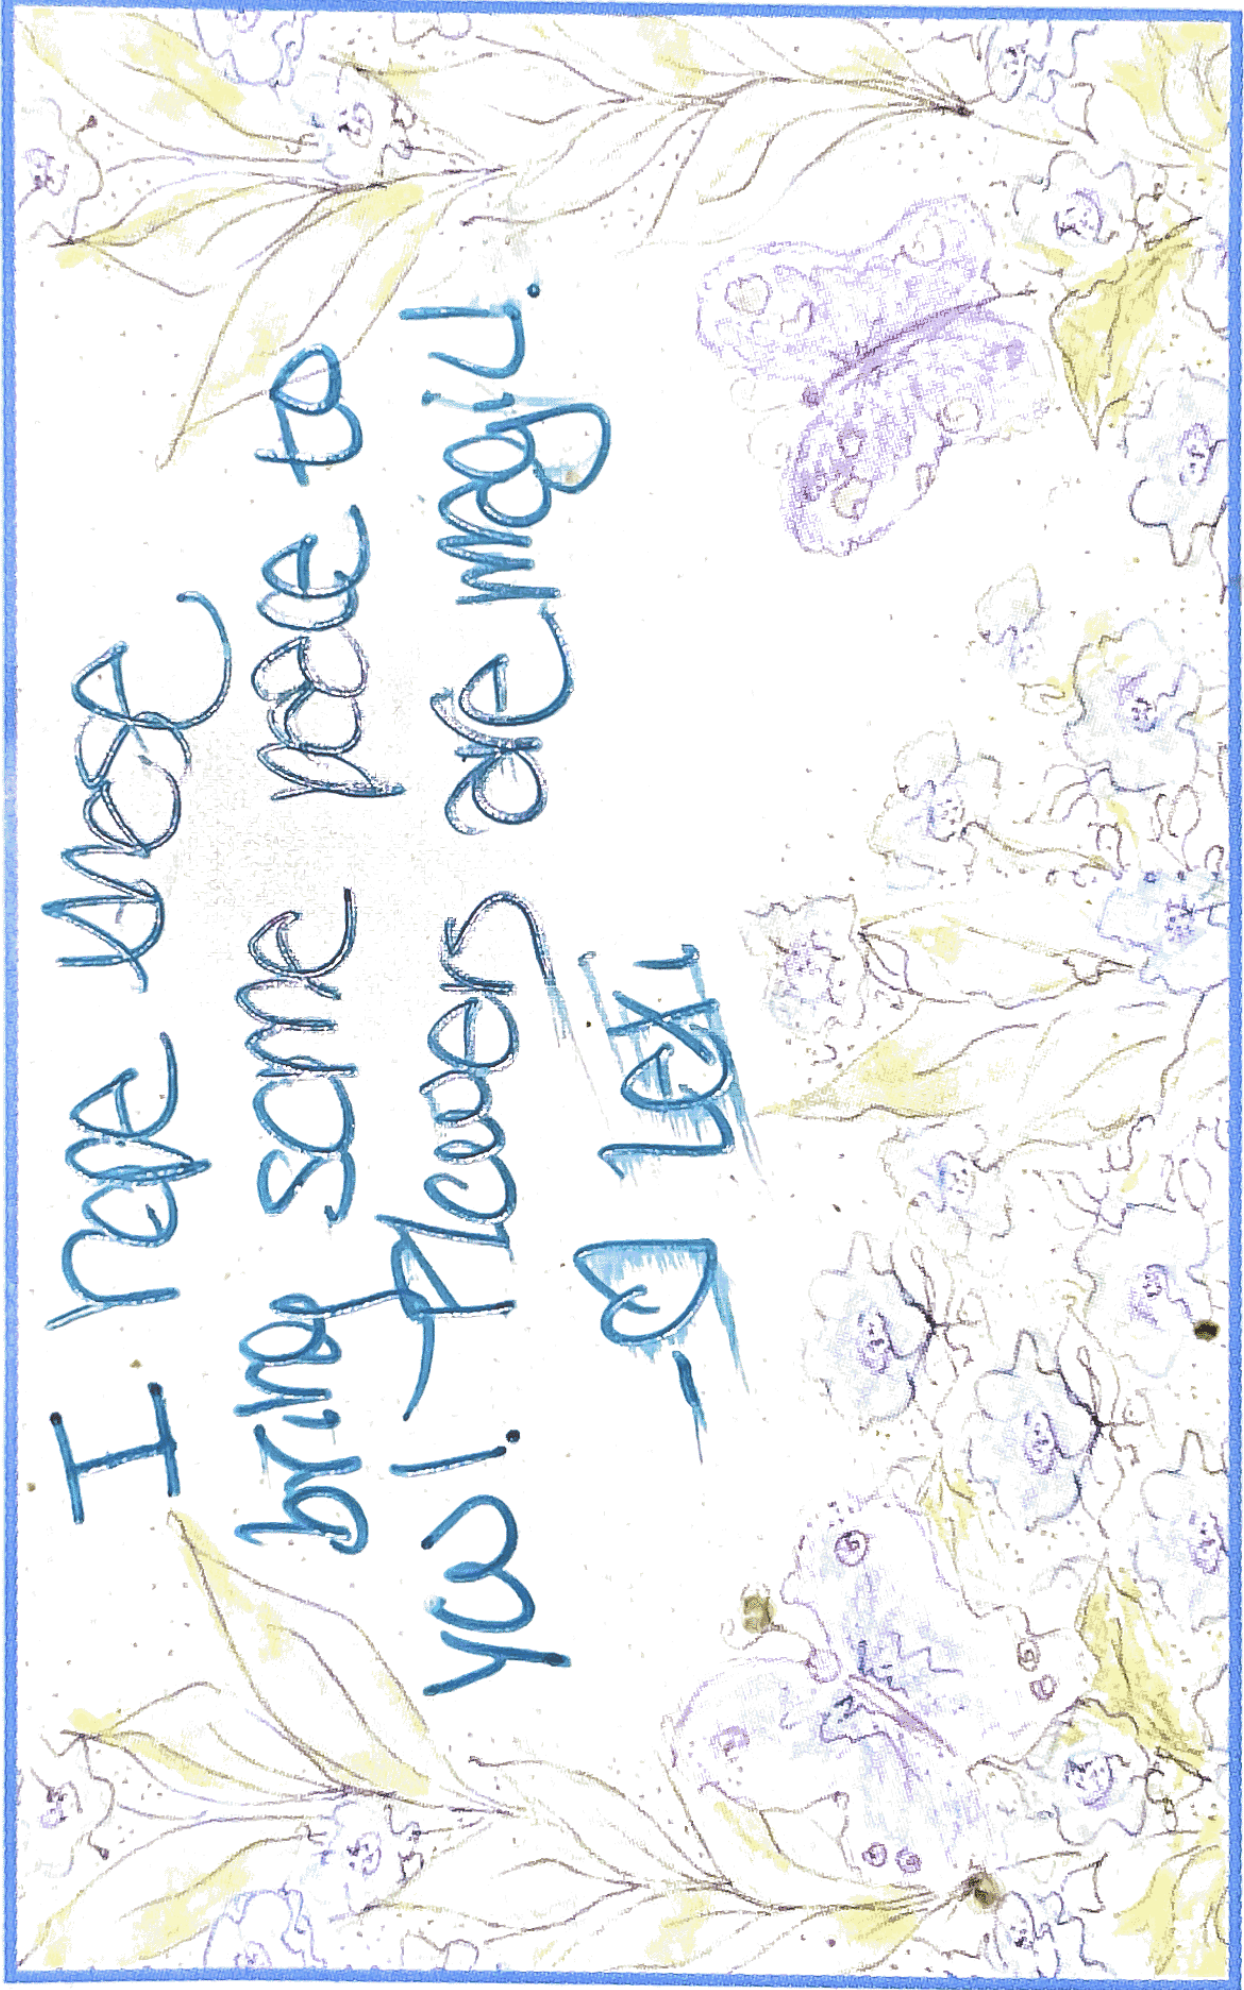 I hope these
bring some peace to
you! Flowers are magic.
- ♡ Lexi